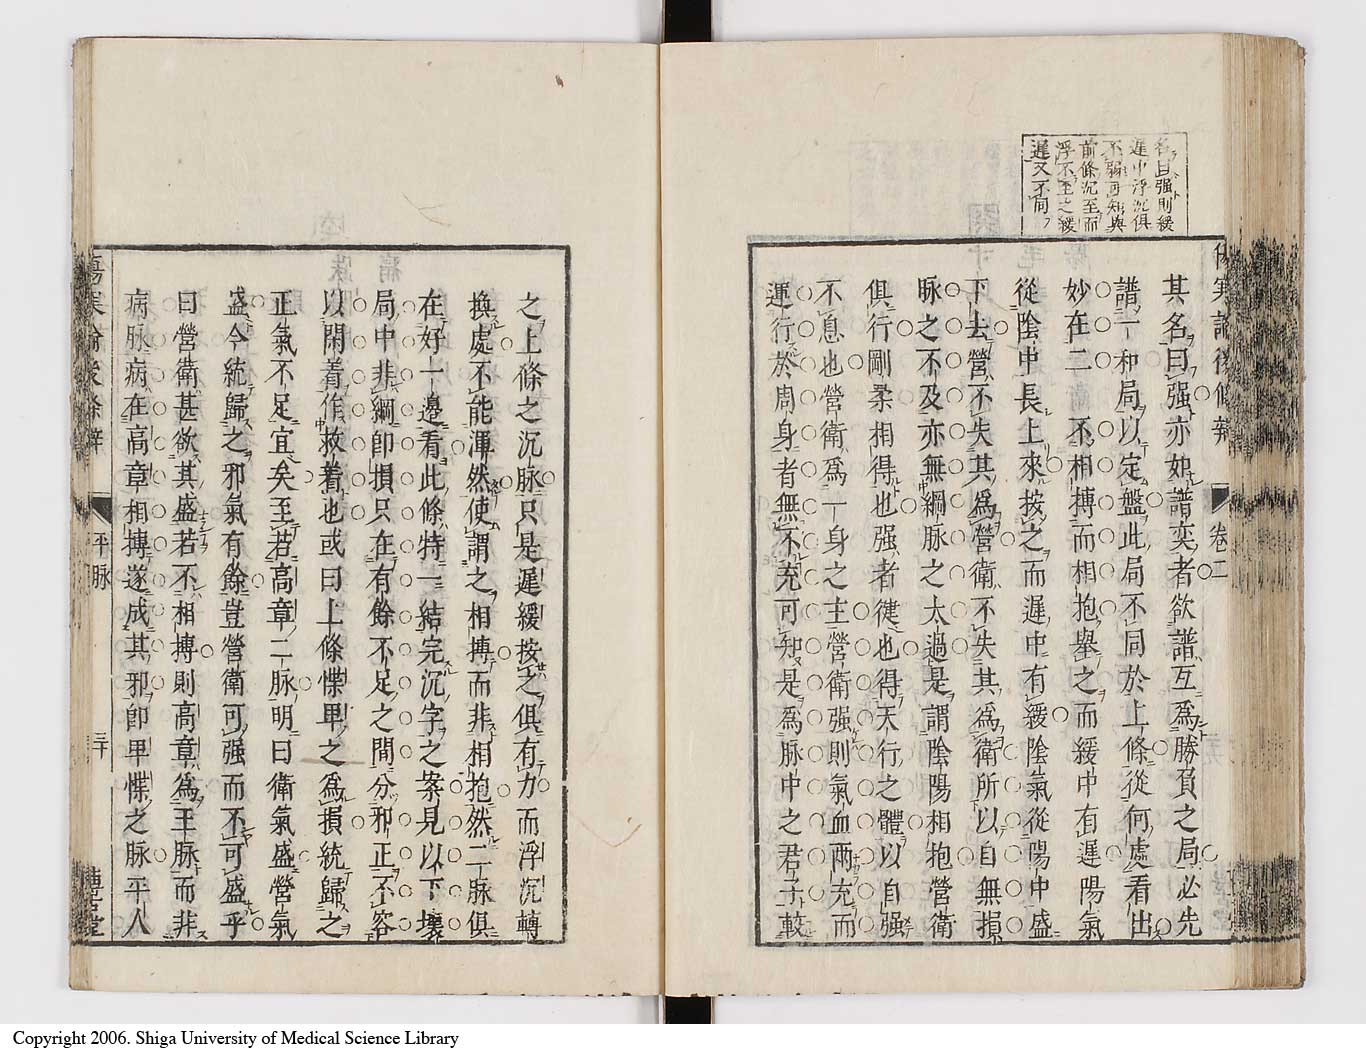 名曰强則緩
遲中浮沉俱
不弱可知與
前條沉至而
浮不至之緩
遲又不同
傷寒論後條辨
卷二
其名曰强亦如譜奕者欲譜互爲勝負之局必先
譜一和局以定盤此局不同於上條從何處看出
妙在二一不相搏而相抱舉之而緩中有遲陽氣
從陰中長上來按之而遲中有緩陰氣從陽中盛
下去營不失其爲營衛不失其爲衛所以自無損
脉之不及亦無綱脉之太過是謂陰陽相抱營衛
俱行剛柔相得也强者健也得天行之體以自强
不息也營衛爲一身之主營衛强則氣血兩充而
運行於周身者無不充可知是爲脉中之君子較
之上條之沉脉只是遲緩按之俱有力而浮沉轉
換處不能渾然使謂之相搏而非相抱然二脉俱
在好一邊看此條特一結完沉字之案見以下壞
局中非綱即損只在有餘不足之間分邪正不容
以閑着作救着也或曰上條惵卑之爲損統歸之
正氣不足宜矣至若高章二脉明曰衛氣盛營氣
盛今統歸之邪氣有餘豈營衛可强而不可盛乎
曰營衛甚欲其盛若不相搏則高章爲王脉而非
病脉病在高章相搏遂成其邪卽卑惵之脉平人
傷寒論後條辨
平脉
二十
Copyright 2006. Shiga University of Medical Science Library